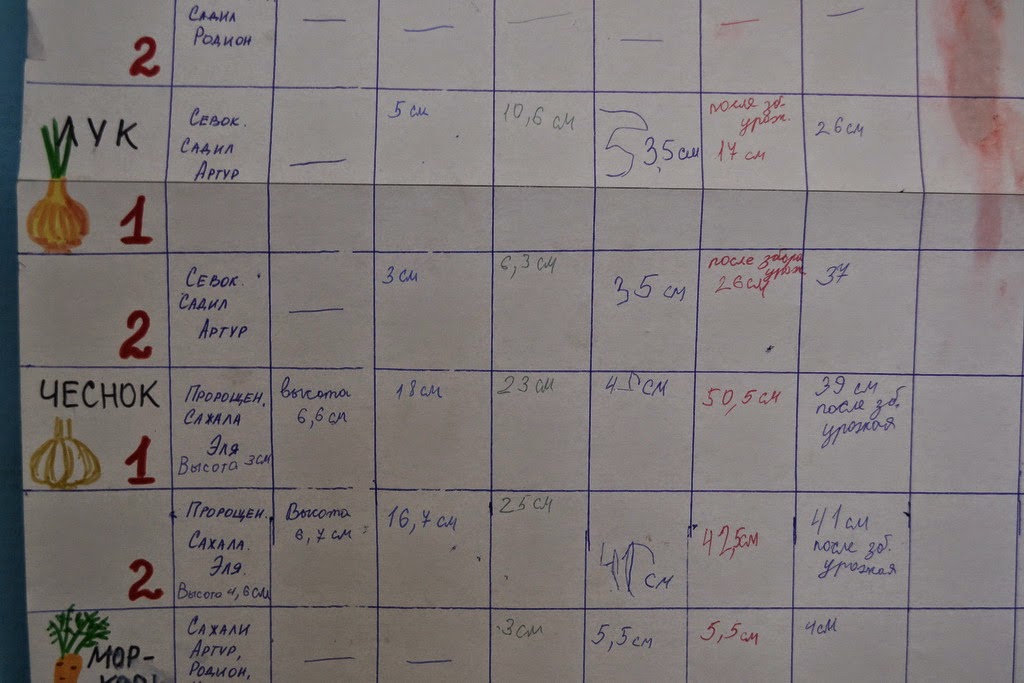 2
Садил
Родион
— — — — — —
ЛУК
1
Севок.
Садил
Артур
—
5 см
10,6 см
после зб.
урож.
17 см
26 см
2
Севок.
Садил
Артур
—
3 см
6,3 см
35 см
после збора
урож
26 см
37
ЧЕСНОК
1
Пророщен.
Сажала
Эля
Высота 3 см
высота
6,6 см
18 см
23 см
45 см
50,5 см
39 см
после зб.
урожая
2
Пророщен.
Сажала.
Эля.
Высота 4,6 см
Высота
6,7 см
16,7 см
25 см
см
42,5 см
41 см
после зб.
урожая
МОР-
Сажали
Артур,
Родион,
— —
3 см
5,5 см
5,5 см
4 см